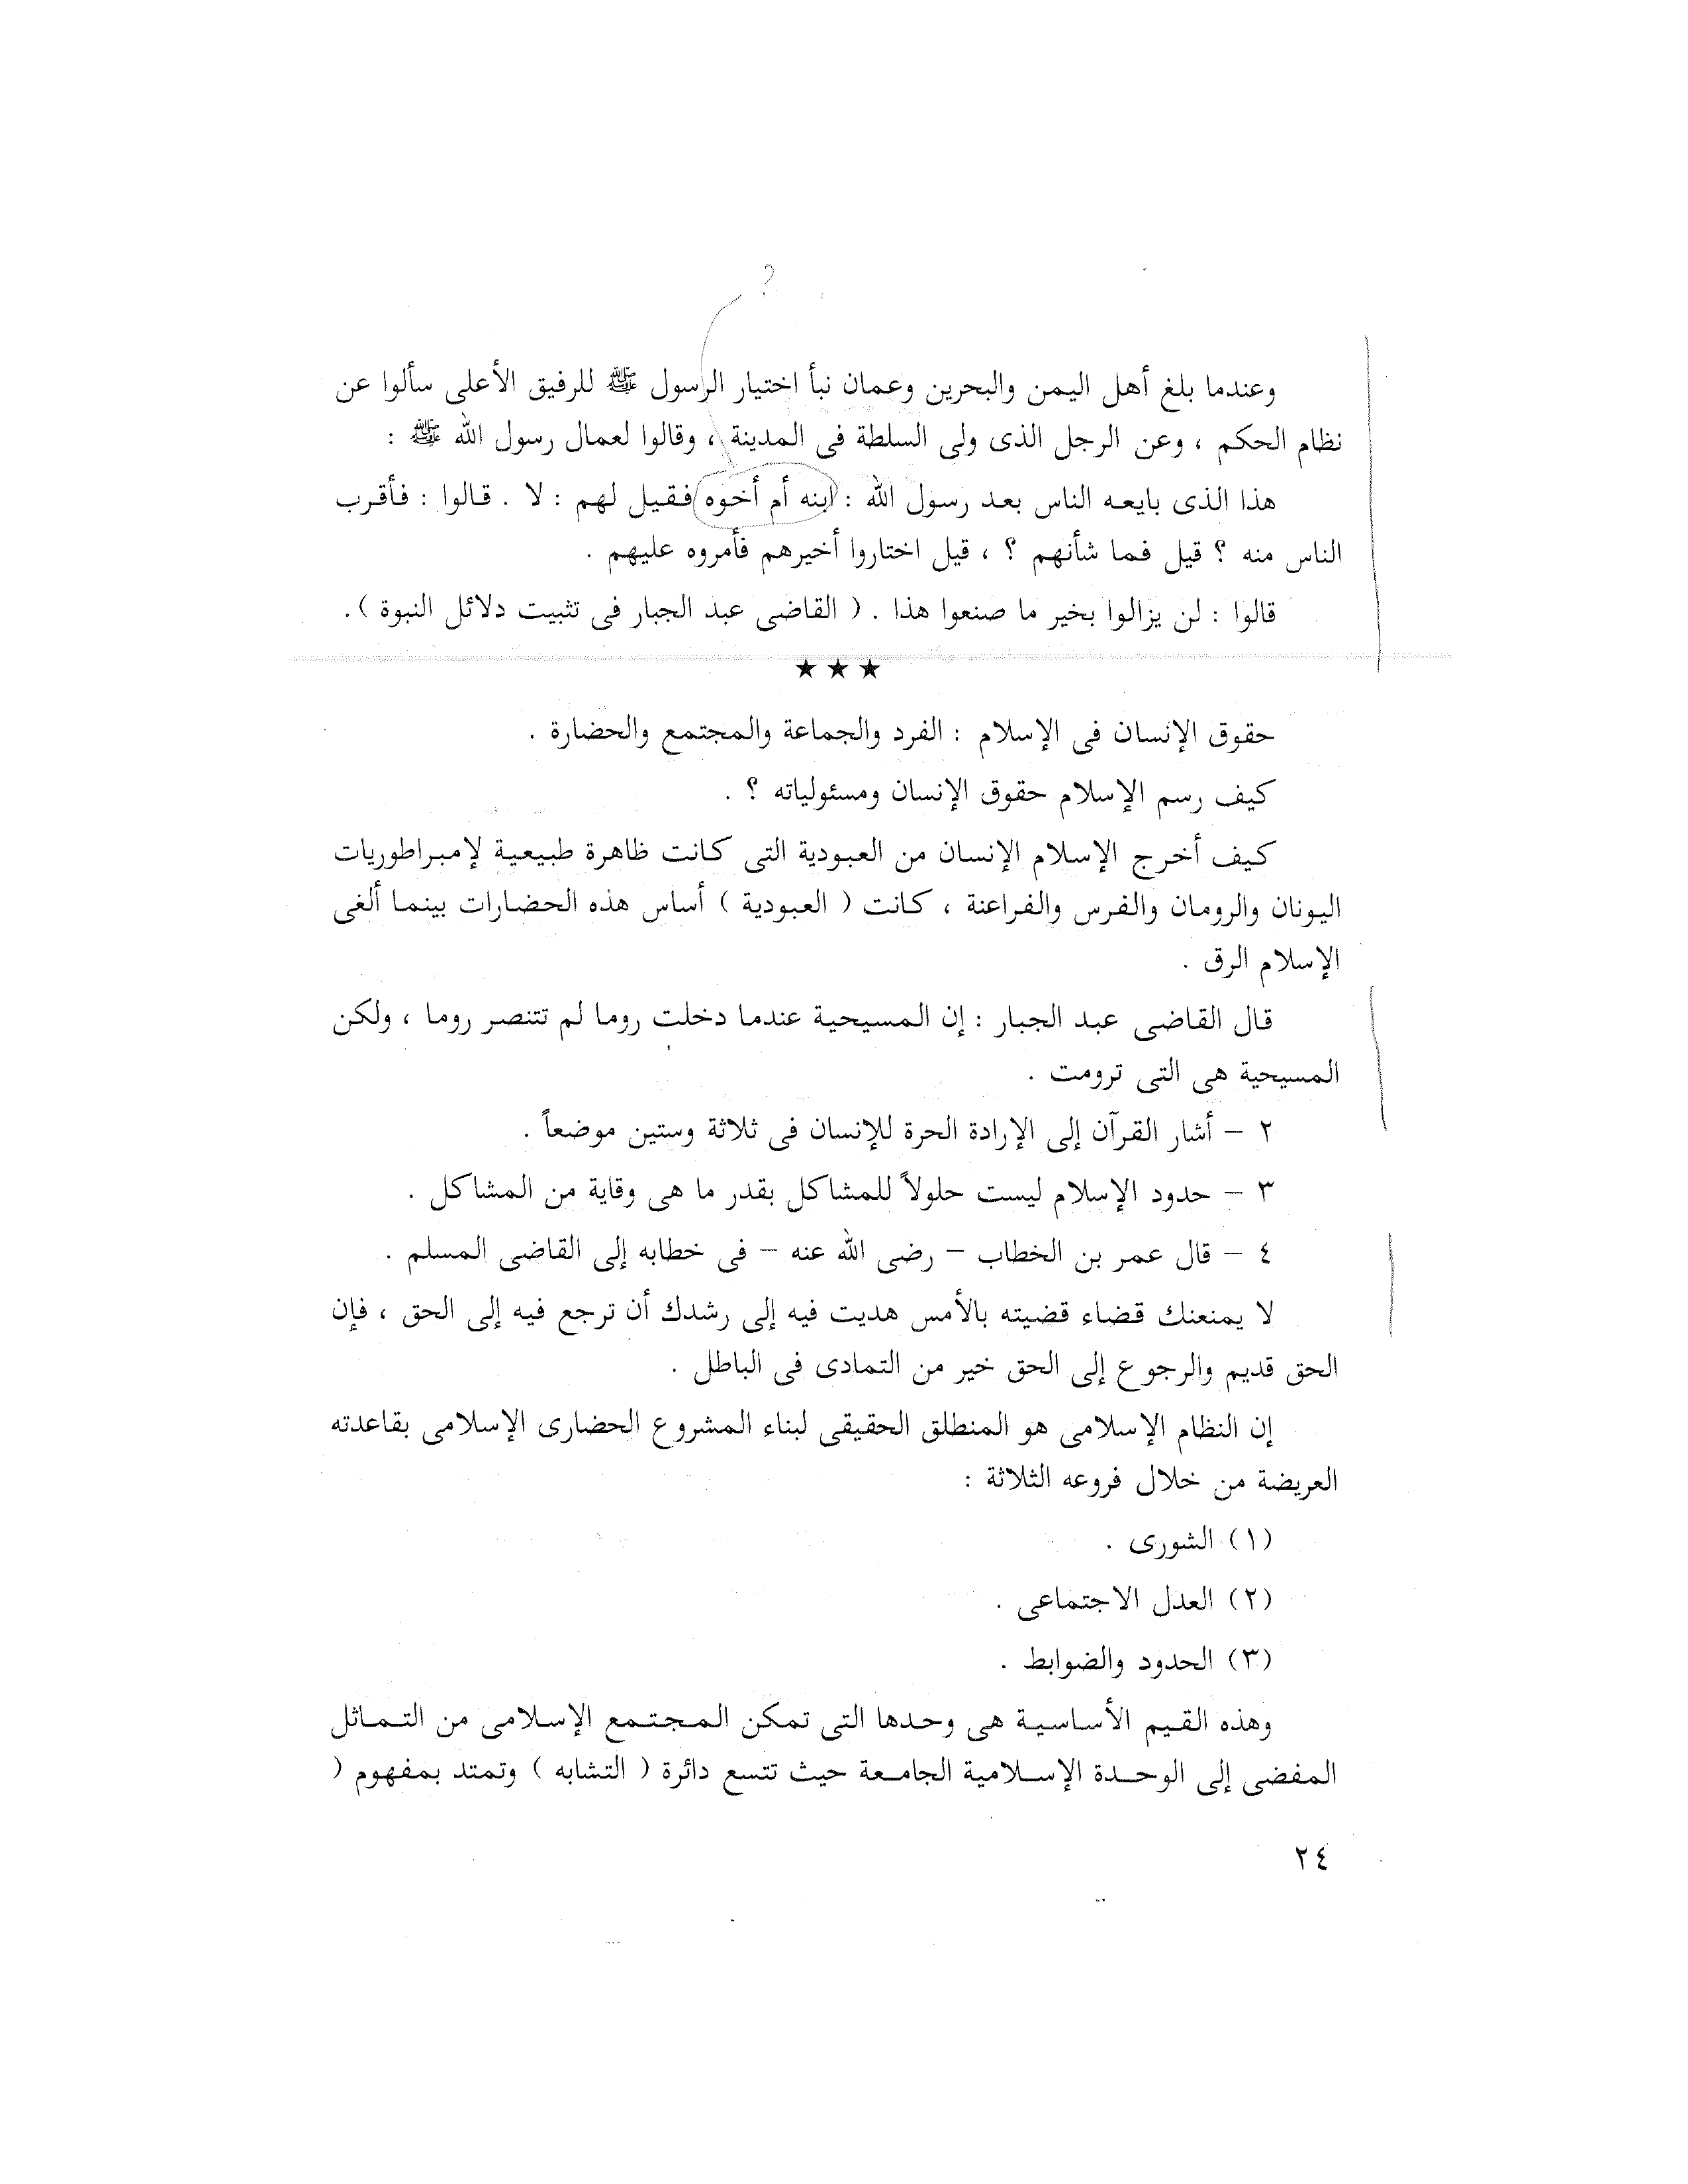 ؟
وعندما بلغ أهل اليمن والبحرين وعمان نبأ اختيار الرسول ﷺ للرفيق الأعلى سألوا عن
نظام الحكم ، وعن الرجل الذى ولى السلطة فى المدينة ، وقالوا لعمال رسول الله ﷺ :
هذا الذى بايعه الناس بعد رسول الله : ابنه أم أخوه فقيل لهم : لا . قالوا : فأقرب
الناس منه ؟ قيل فما شأنهم ؟ ، قيل اختاروا أخيرهم فأمروه عليهم .
قالوا : لن يزالوا بخير ما صنعوا هذا . ( القاضى عبد الجبار فى تثبيت دلائل النبوة ) .
★ ★ ★
حقوق الإنسان فى الإسلام : الفرد والجماعة والمجتمع والحضارة .
كيف رسم الإسلام حقوق الإنسان ومسئولياته ؟ .
كيف أخرج الإسلام الإنسان من العبودية التى كانت ظاهرة طبيعية لإمبراطوريات
اليونان والرومان والفرس والفراعنة ، كانت ( العبودية ) أساس هذه الحضارات بينما ألغى
الإسلام الرق .
قال القاضى عبد الجبار : إن المسيحية عندما دخلت روما لم تتنصر روما ، ولكن
المسيحية هى التى ترومت .
٢ – أشار القرآن إلى الإرادة الحرة للإنسان فى ثلاثة وستين موضعاً .
٣ – حدود الإسلام ليست حلولاً للمشاكل بقدر ما هى وقاية من المشاكل .
٤ – قال عمر بن الخطاب – رضى الله عنه – فى خطابه إلى القاضى المسلم .
لا يمنعنك قضاء قضيته بالأمس هديت فيه إلى رشدك أن ترجع فيه إلى الحق ، فإن
الحق قديم والرجوع إلى الحق خير من التمادى فى الباطل .
إن النظام الإسلامى هو المنطلق الحقيقى لبناء المشروع الحضارى الإسلامى بقاعدته
العريضة من خلال فروعه الثلاثة :
(١) الشورى .
(٢) العدل الاجتماعى .
(٣) الحدود والضوابط .
وهذه القيم الأساسية هى وحدها التى تمكن المجتمع الإسلامى من التماثل
المفضى إلى الوحدة الإسلامية الجامعة حيث تتسع دائرة ( التشابه ) وتمتد بمفهوم (
٢٤